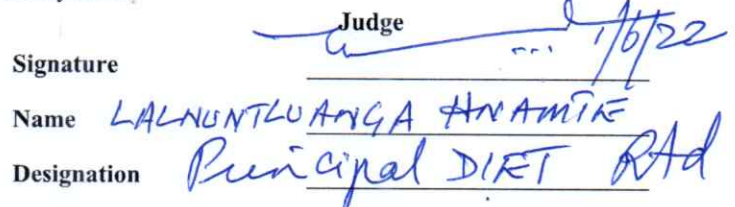 Judge
1/6/22
Signature
Name LALNUNTLUANGA HNAMTE
Designation Principal DIET Rtd